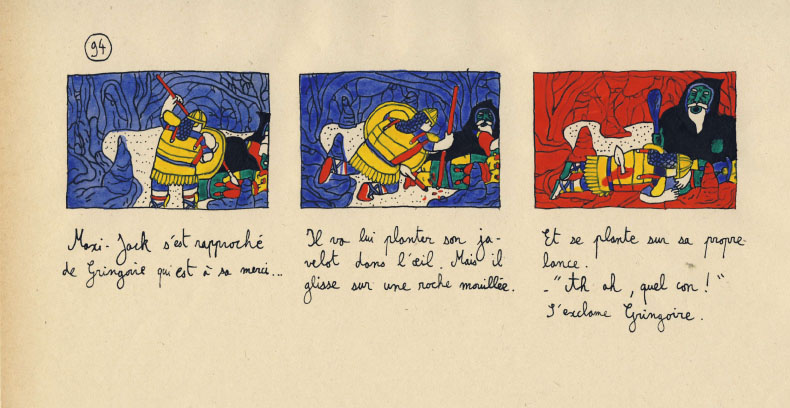 94
Maxi-Jack s'est rapproché
de Gringoire qui est à sa merci...
Il va lui planter son ja-
velot dans l'œil. Mais il
glisse sur une roche mouillée.
Et se plante sur sa propre
lance.
-"Ah ah, quel con !"
S'exclame Gringoire.